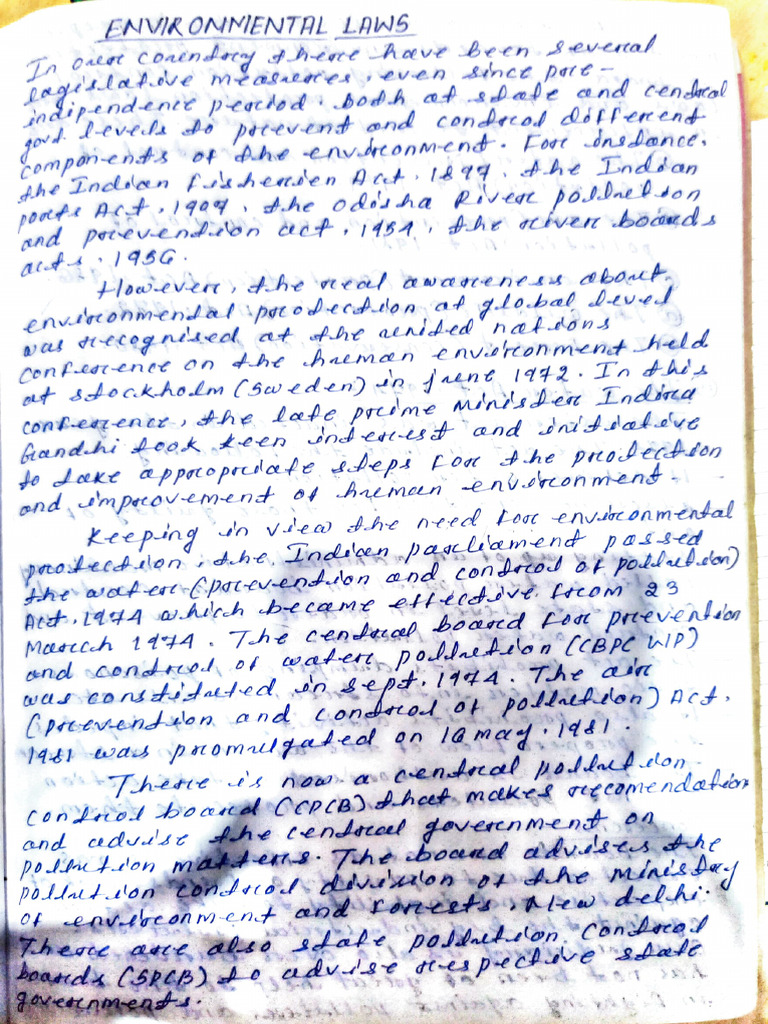 ENVIRONMENTAL LAWS
In our country there have been several
legislative measures, even since pre-
indipendence period. both at state and central
govt. levels to prevent and control different
components of the environment. For instance,
the Indian Fisherien Act. 1899, the Indian
ports Act. 1909, the odisha River pollution
and prevention act. 1954, the river boards
acts. 1956.
However, the real awareness about
environmental protection at global level
was recognised at the united nations
conference on the human environment held
at stockholm (Sweden) in june 1972. In this
conference, the late prime Minister Indira
Gandhi took keen interest and initiative
to take appropriate steps for the protection
and improvement of human environment.
Keeping in view the need for environmental
protection, the Indian parliament passed
the water (prevention and control of pollution)
Act. 1974 which became effective from 23
March 1974. The central board for prevention
and control of water pollution (CBPC WP)
was constituted in sept. 1974. The air
(prevention and control of pollution) Act.
1981 was promulgated on 16 may. 1981.
There is now a central pollution
control board (CPCB) that makes recomendation
and advise the central government on
pollution matters. The board advises the
pollution control division of the ministry
of environment and forests, New delhi.
There are also state pollution control
boards (SPCB) to advise respective state
governments.